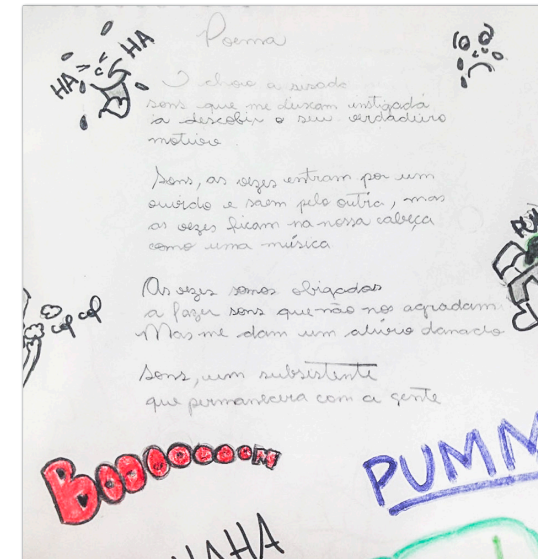 Poema
HA
HA
O choro a risada
sons que me deixam instigada
a descobrir o seu verdadeiro
motivo
Sons, as vezes entram por um
ouvido e saem pelo outro, mas
as vezes ficam na nossa cabeça
como uma música
As vezes somos obrigados
a fazer sons que não nos agradam
Mas me dam um alívio danado
Sons, um subsistente
que permanecera com a gente
cof cof
BOOOOOOOM
PUMM
HAHA